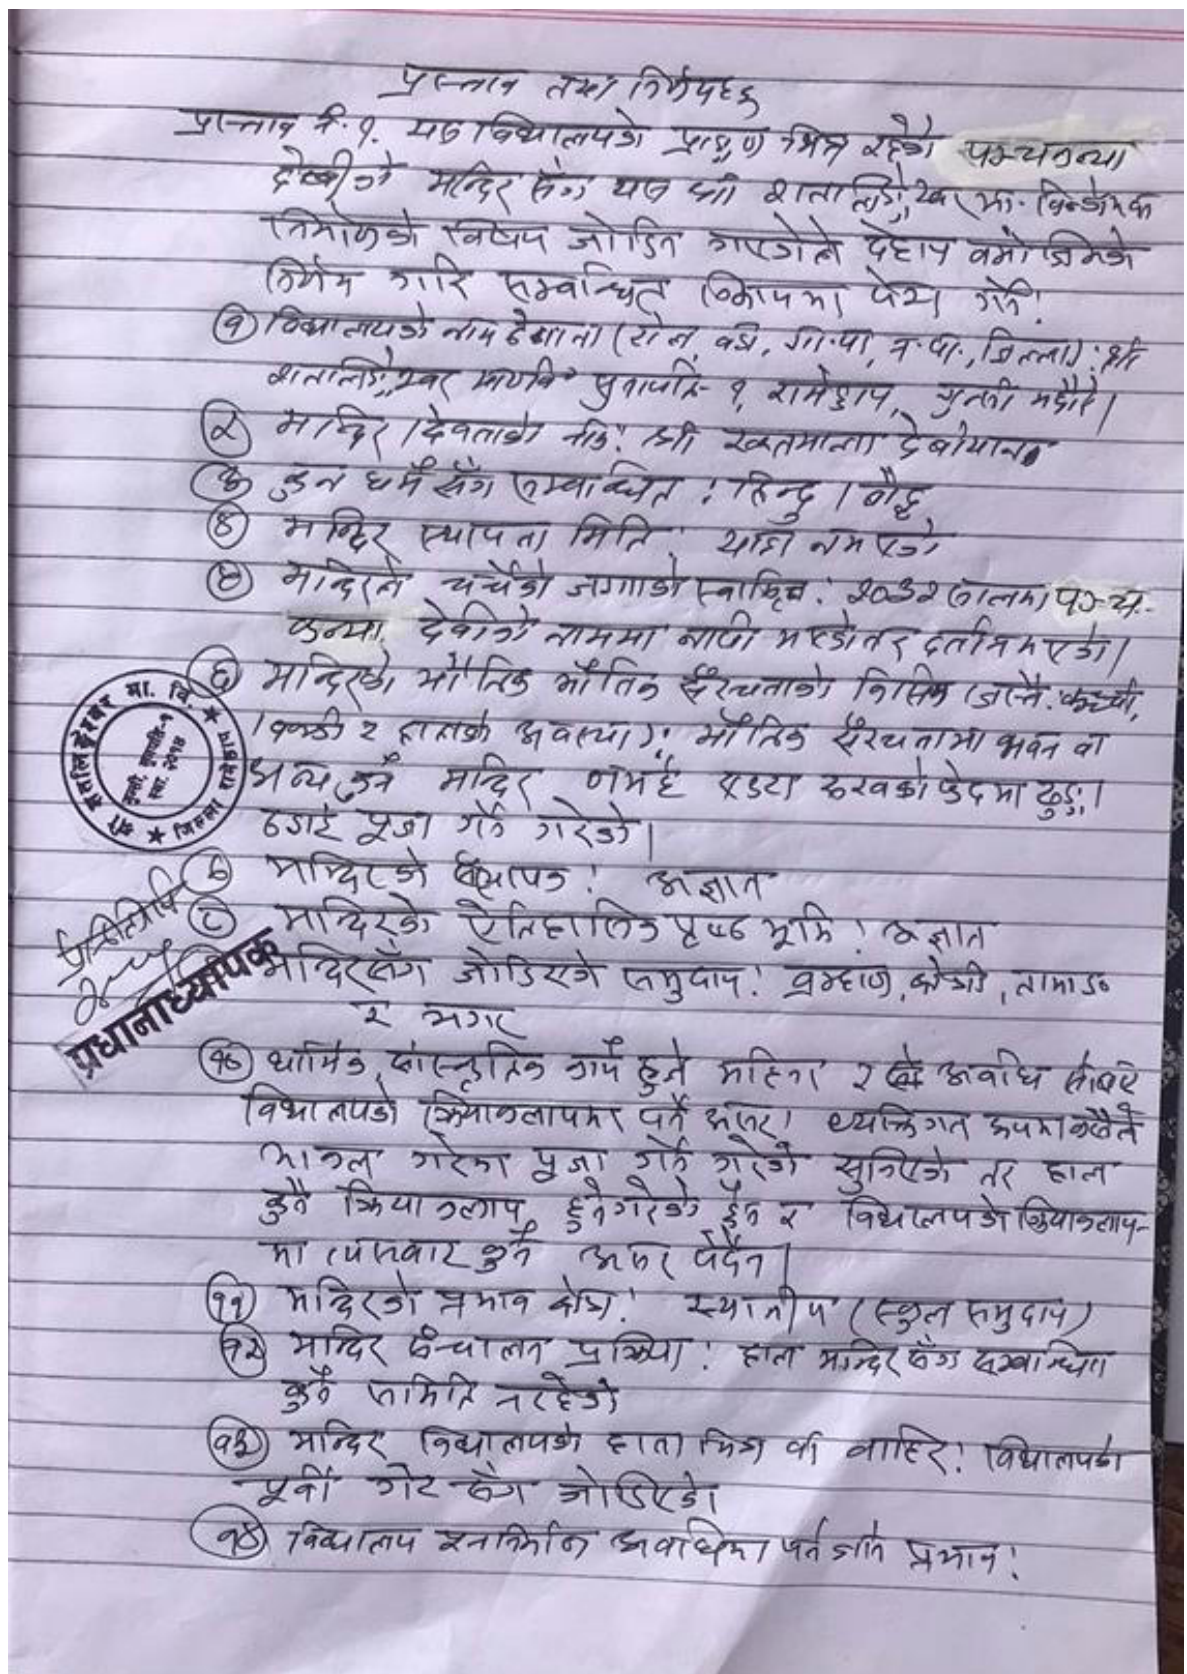 प्रस्ताव तथा निर्णयहरु
प्रस्ताव नं. १. यस विद्यालयको प्राङ्गण भित्र रहेको पञ्चकन्या
देवीको मन्दिर सँग यस श्री शतालिङ्गेश्वर मा. वि.को भवन
निर्माणको विषय जोडिन गएकोले देहाय बमोजिमको
निर्णय गरि सम्बन्धित निकायमा पेश गर्ने।
१ विद्यालयको नाम ठेगाना (टोल, वडा, गा.पा, न.पा., जिल्ला): श्री
शतालिङ्गेश्वर मा वि सुनापति-१, रामेछाप, गुन्सी भदौरे।
२ मन्दिर/देवताको नाम: श्री रक्तमाला देवीथान
३ कुन धर्म सँग सम्बन्धित: हिन्दु/बौद्ध
४ मन्दिर स्थापना मिति: थाहा नभएको
५ मन्दिरले चर्चेको जग्गाको स्वामित्व: २०३२ सालमा पञ्च-
कन्या देवीको नाममा नापी भएको तर दर्ता नभएको।
६ मन्दिरको भौतिक भौतिक संरचनाको किसिम (जस्तै: कच्ची,
पक्की र हालको अवस्था): भौतिक संरचनामा भवन वा
अन्य कुनै मन्दिर नभई एउटा रुखको फेदमा ढुङ्गा
ठडाई पूजा गर्ने गरेको।
७ मन्दिरको संस्थापक: अज्ञात
८ मन्दिरको ऐतिहासिक पृष्ठ भूमि: अज्ञात
मन्दिरसँग जोडिएको समुदाय: ब्रम्हाण, क्षेत्री, तामाङ
र मगर
१० धार्मिक, सांस्कृतिक कार्य हुने महिना र अवधि सोबारे
विद्यालयको क्रियाकलापमा पर्ने असर: व्यक्तिगत रुपमा कसैले
भाकल गरेमा पूजा गर्ने गरेको सुनिएको तर हाल
कुनै क्रियाकलाप हुनेगरेको छैन र विद्यालयको क्रियाकलाप-
मा त्यसबाट कुनै असर पर्दैन।
११ मन्दिरको प्रभाव क्षेत्र: स्थानीय (स्कुल समुदाय)
१२ मन्दिर संचालन प्रक्रिया: हाल मन्दिर सँग सम्बन्धित
कुनै समिति नरहेको
१३ मन्दिर विद्यालयको हाता भित्र वा बाहिर: विद्यालयको
पूर्वी गेट सँग जोडिएको।
१४ विद्यालय पुनर्निर्माण अवधिमा पर्न जाने प्रभाव:
श्री शतालिङ्गेश्वर मा. वि.
गुन्सी, सुनापति-१
स्था. २०१४
जिल्ला रामेछाप
प्रतिलिपि
प्रधानाध्यापक